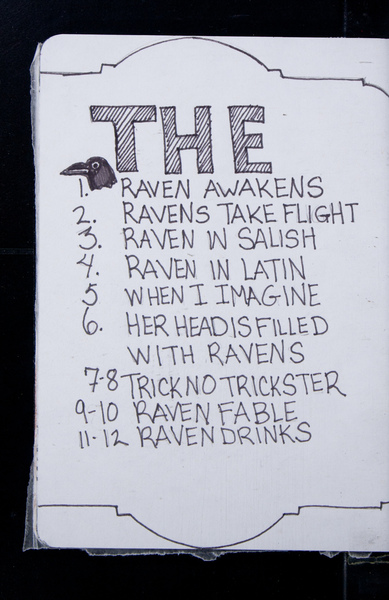 THE
1. RAVEN AWAKENS
2. RAVENS TAKE FLIGHT
3. RAVEN IN SALISH
4. RAVEN IN LATIN
5 WHEN I IMAGINE
6. HER HEAD IS FILLED
WITH RAVENS
7-8 TRICK NO TRICKSTER
9-10 RAVEN FABLE
11-12 RAVEN DRINKS